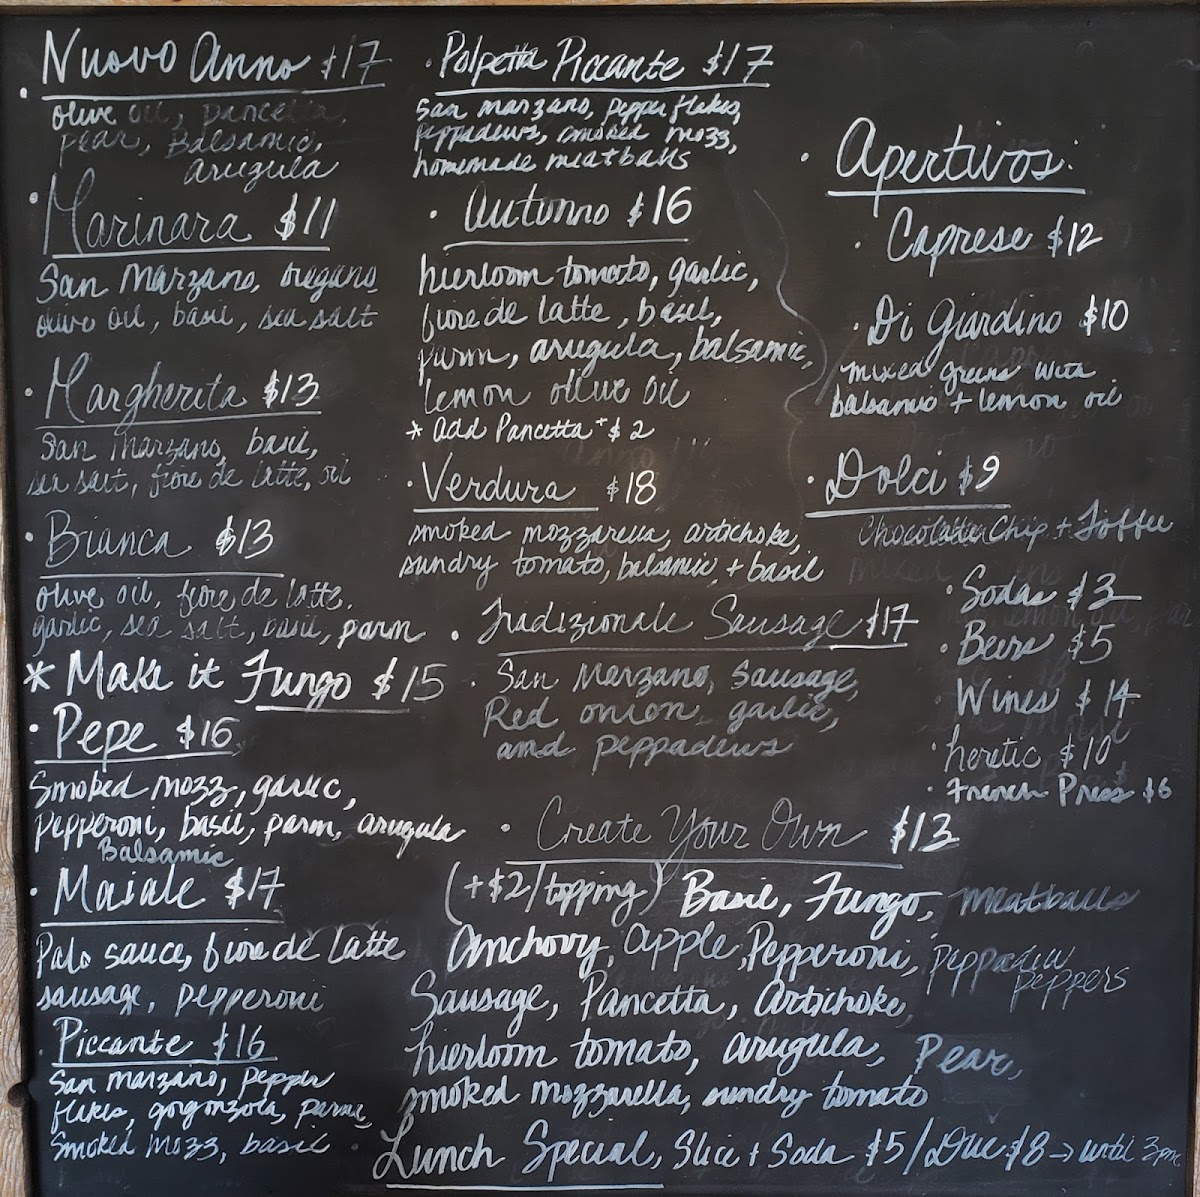 Nuovo Anno $17
olive oil, pancetta,
pear, Balsamic,
arugula
Marinara $11
San Marzano, oregano,
olive oil, basil, sea salt
Margherita $13
San Marzano, basil,
sea salt, fiore de latte, oil
Bianca $13
olive oil, fiore de latte,
garlic, sea salt, basil, parm
* Make it Fungo $15
Pepe $16
Smoked mozz, garlic,
pepperoni, basil, parm, arugula
Balsamic
Maiale $17
Palo sauce, fiore de latte
sausage, pepperoni
Piccante $16
San Marzano, pepper
flakes, gorgonzola, parm,
Smoked Mozz, basil
Polpetta Piccante $17
San marzano, pepper flakes,
peppadews, smoked mozz,
homemade meatballs
Autunno $16
hierloom tomato, garlic,
fiore de latte, basil,
parm, arugula, balsamic,
lemon olive oil
* add Pancetta + $2
Verdura $18
smoked mozzarella, artichoke,
sundry tomato, balsamic, + basil
Tradizionale Sausage $17
San Marzano, sausage,
Red onion, garlic,
and peppadews
Create Your Own $13
(+$2/topping) Basil, Fungo, meatballs
anchovy, apple, Pepperoni, Peppadew
peppers
Sausage, Pancetta, Artichoke,
hierloom tomato, arugula, Pear,
smoked mozzarella, sundry tomato
Lunch Special, Slice + Soda $5/Due $8 → until 3pm
Apertivos:
Caprese $12
Di Giardino $10
mixed greens with
balsamic + lemon oil
Dolci $9
Chocolate Chip + Toffee
Sodas $3
Beers $5
Wines $14
heretic $10
French Press $6